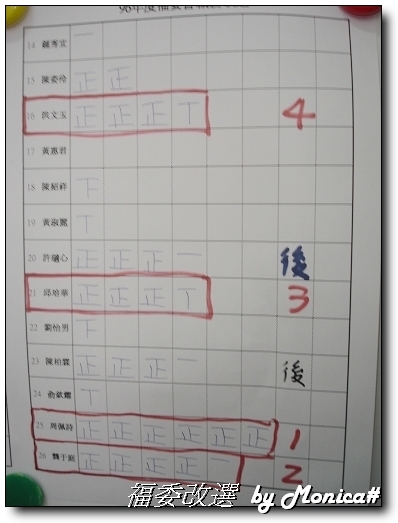 14 鍾秀宜 一
15 陳姿伶 正 正
16 洪文玉 正 正 正 丅 4
17 黃惠君
18 陳紹祥 下
19 黃淑 丅
20 許 心 正 正 正 一 後
21 邱培華 正 正 正 丅 3
22 劉怡男 下
23 陳柏霖 正 正 正 一 後
24 俞 丅
25 周佩詩 正 正 正 正 正 正 1
26 魏于 正 正 正 正 一 2
福委改選 by Monica#